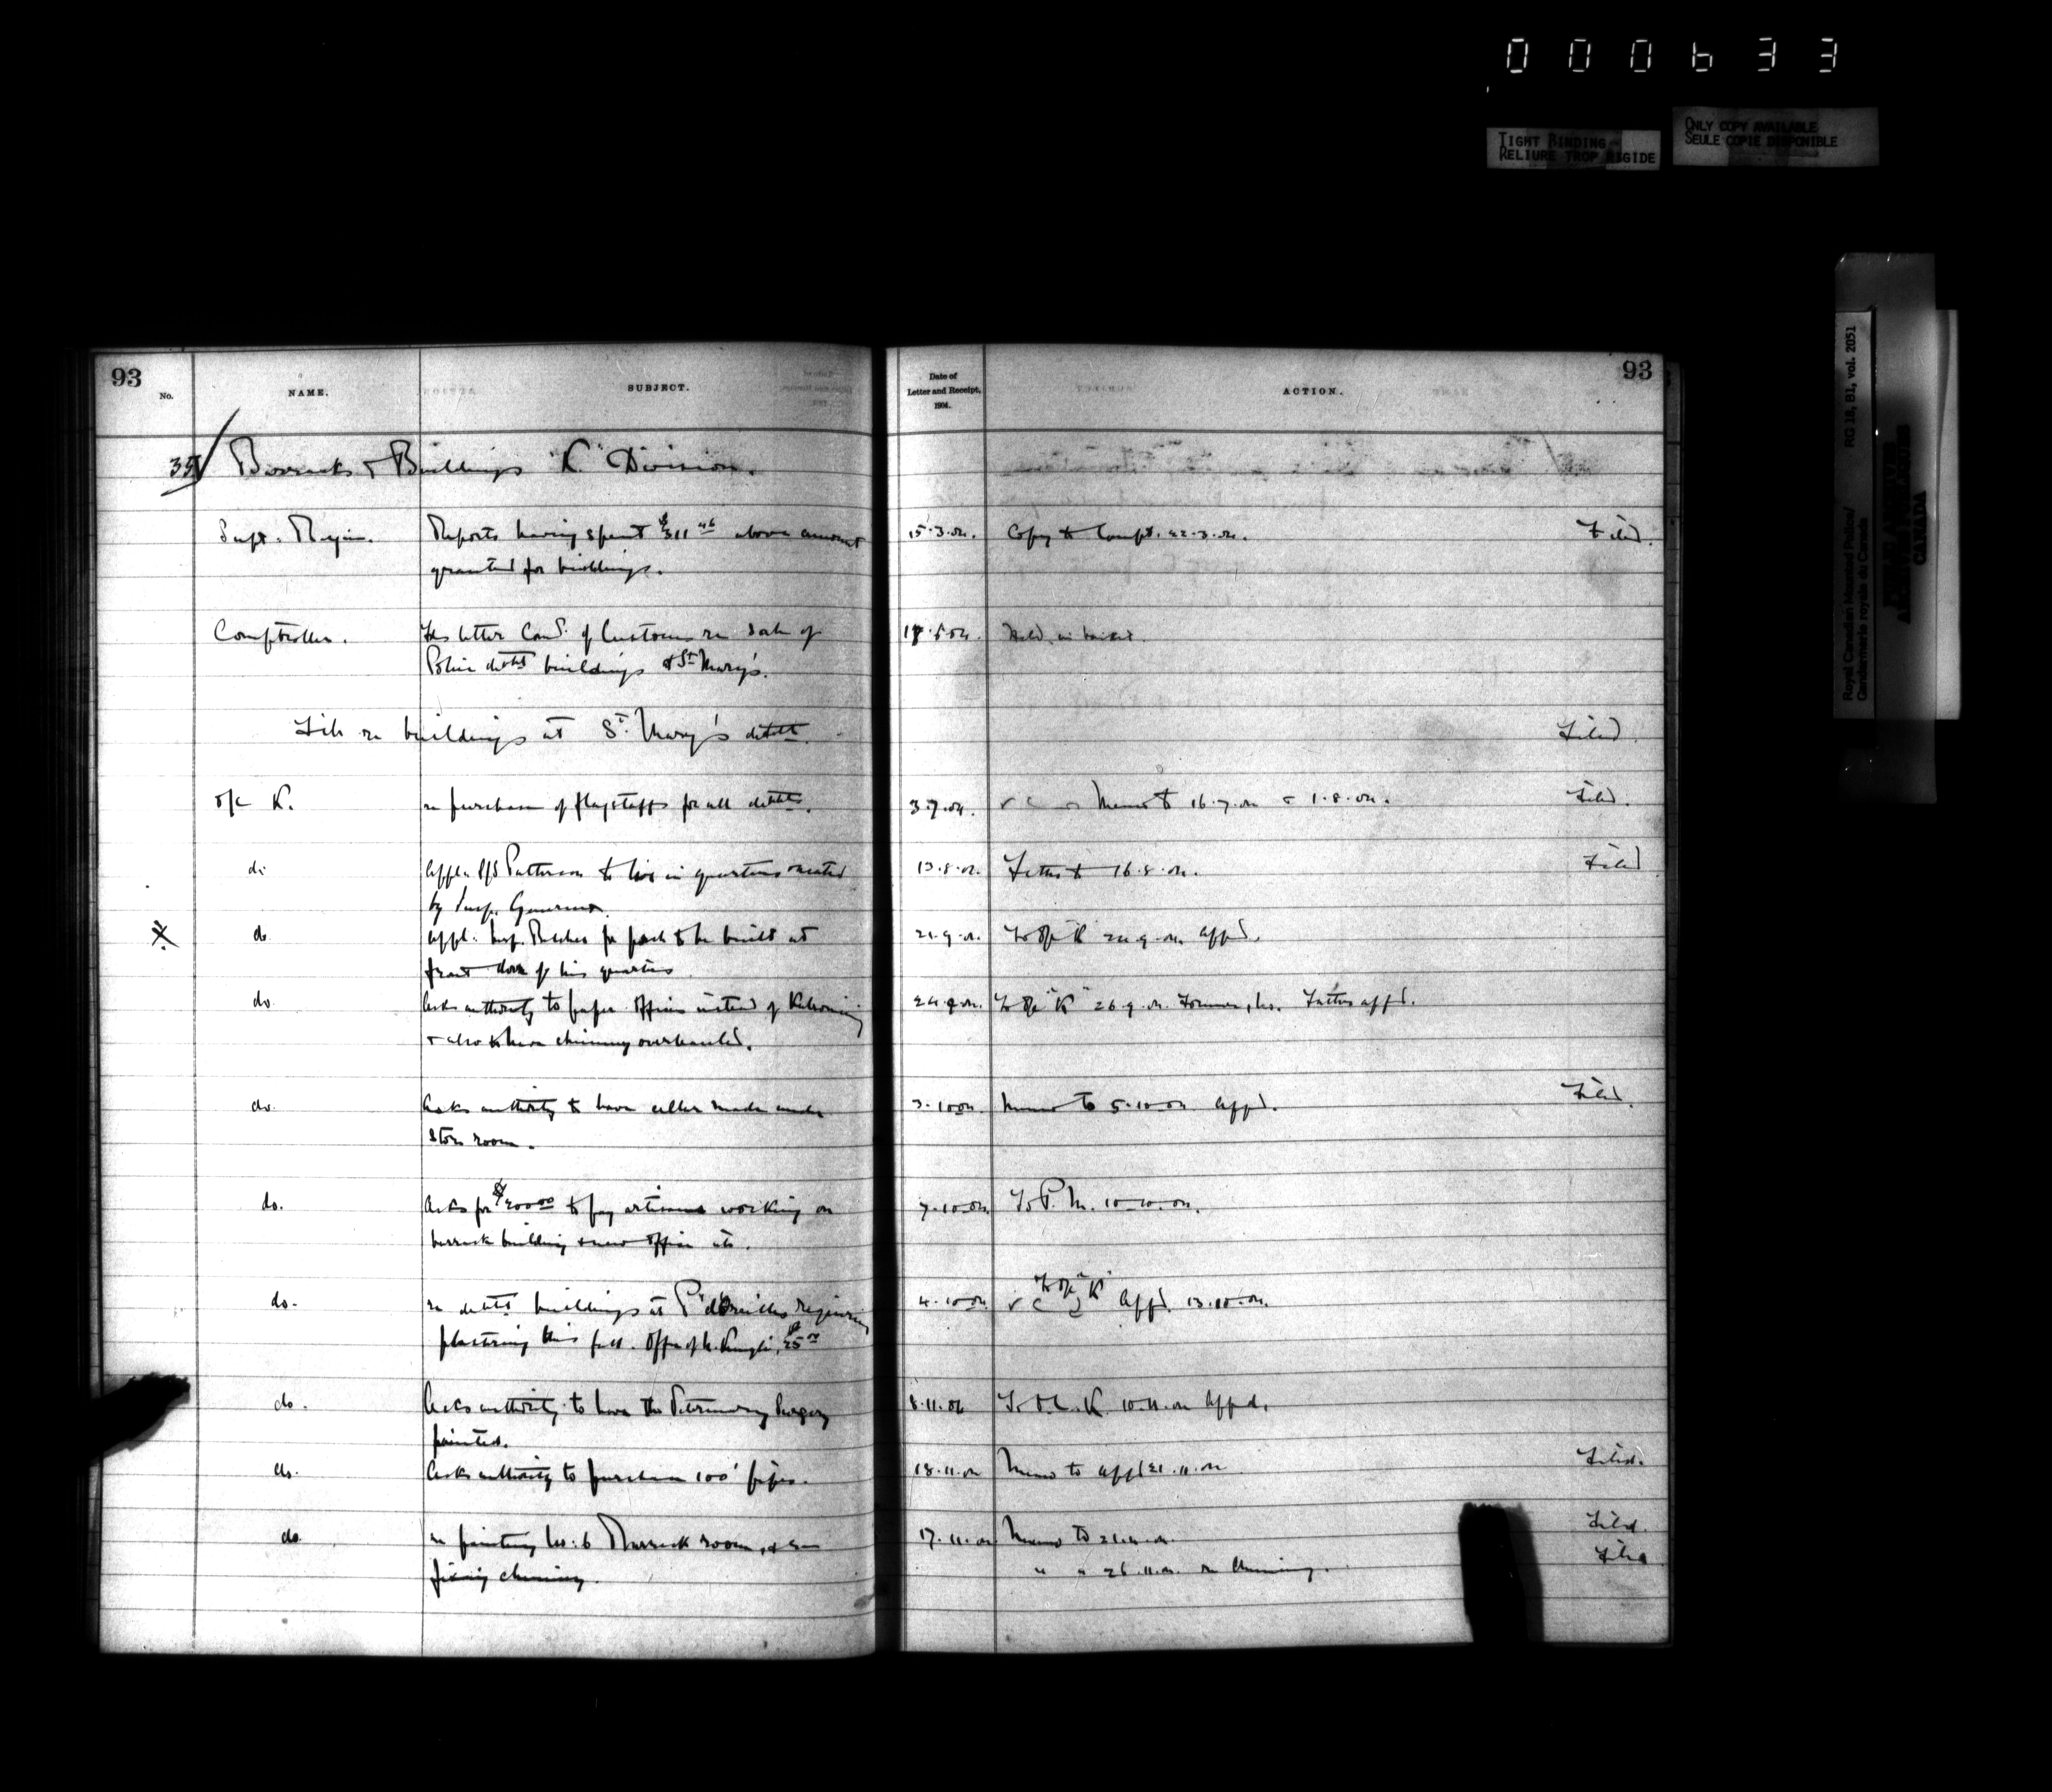 000633
TIGHT BINDING
RELIURE TROP RIGIDE
ONLY COPY AVAILABLE
SEULE COPIE DISPONIBLE
Royal Canadian Mounted Police/ RG 18, B1, vol. 2051
Gendarmerie royale du Canada
CANADA
93
No. NAME. SUBJECT.
Date of
Letter and Receipt,
1904.
ACTION.
93
35 Barracks & Buildings "K" Division.
Supt. Reports having spent $311 above amount 15.3.04. Copy to Compt. 22.3.04. Filed.
granted for buildings.
Comptroller. letter of Customs re sale of
Police detht buildings at St Mary's.
File re buildings at St. Mary's detht. Filed.
O/C K. re purchase of flagstaffs for all dethts. 3.7.04. Memo to 16.7.04 & 1.8.04. Filed.
do Appl. S/S Patterson to live in quarters 13.8.04. Letter to 16.8.04. Filed
by Insp.
do appl. Insp. for porch to be built at 21.9.04. To O/C "K" 24.9.04. appd.
front door of his quarters
do. Asks authority to paper offices instead of Kalsomining 24.9.04. To O/C "K" 26.9.04. Former, no. Latter appd.
& also to have chimney overhauled.
do. Asks authority to have cellar made under 3.10.04. Memo to 5.10.04 appd. Filed.
store room.
do. Asks for $200.00 to pay artisans working on 7.10.04. To P.M. 10.10.04.
barrack building & new office etc.
do. re detht buildings at requiring 4.10.04 To O/C "K" Appd. 13.10.04.
plastering this fall. Offer of $25.00
do. Asks authority to have the Veterinary Surgery 8.11.04 To O.C. K. 10.11.04 appd.
painted.
do. Asks authority to purchase 100' pipes. 18.11.04 Memo to appd 21.11.04 Filed.
do. re painting No. 6 Barrack room, & re 17.11.04 Memo to 21.11.04. Filed.
fixing chimney. " " 26.11.04. re Chimney. Filed